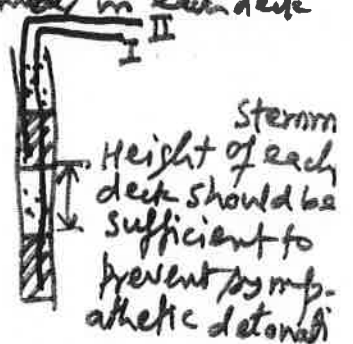 in each deck
II
I
Stemm
Height of each
deck should be
sufficient to
prevent symp-
athetic detonati